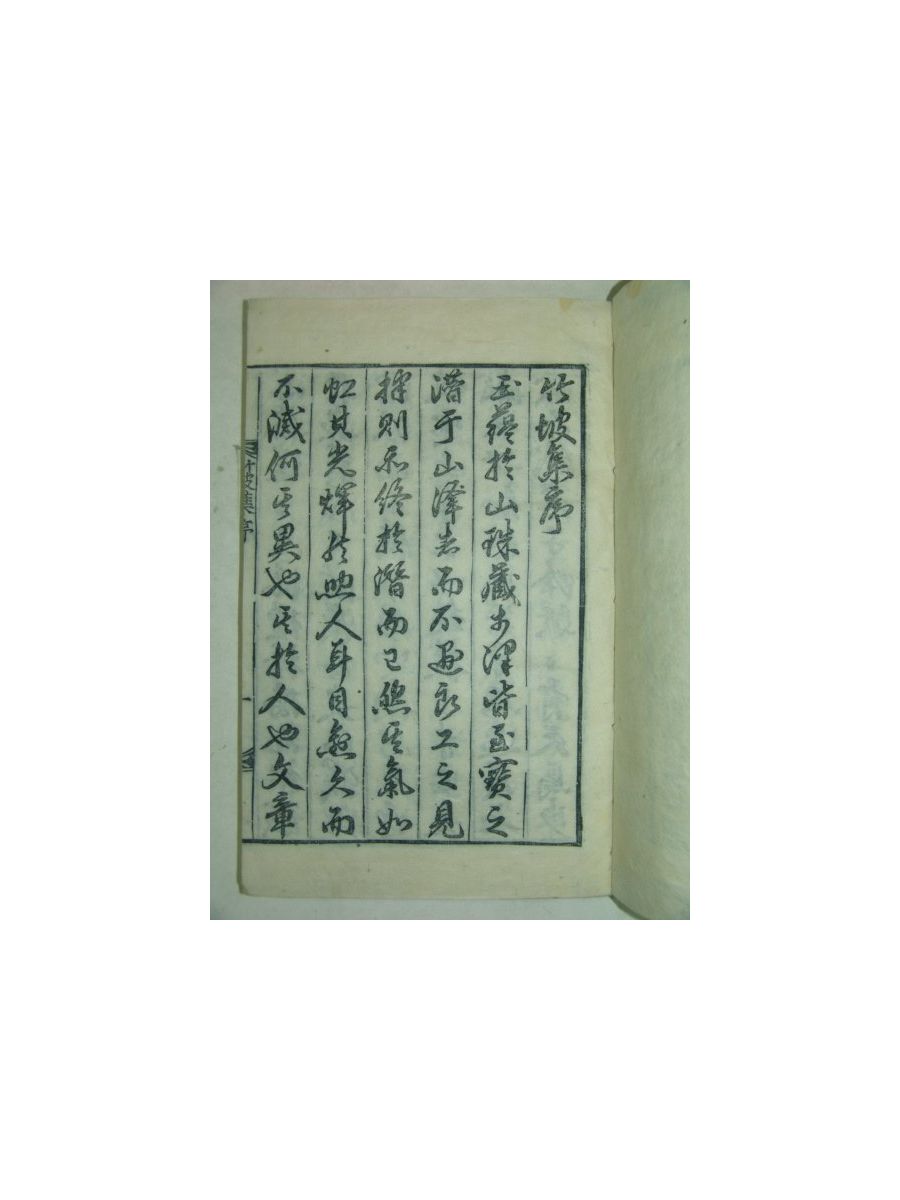 竹坡集序
玉蘊於山珠藏于澤皆至寶之
潛于山澤者而不遇良工之見
採則不終於潛而已然其氣如
虹其光輝於照人耳目愈久而
不滅何其異也其於人也文章
竹坡集序
一